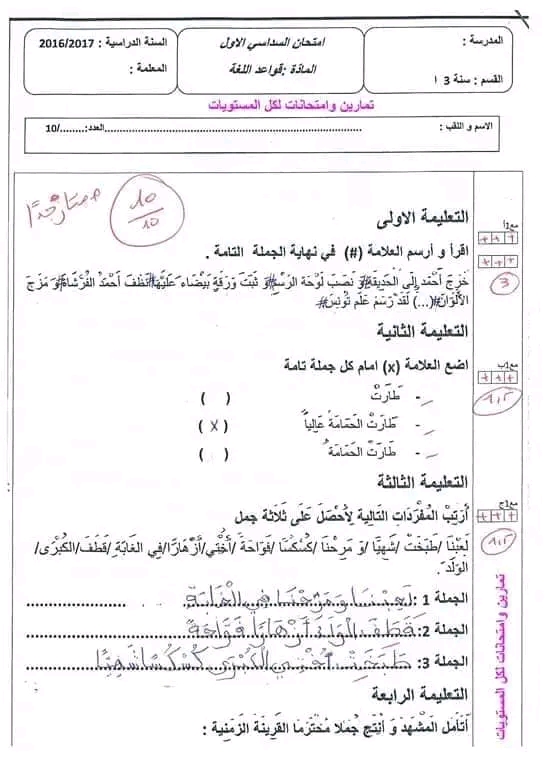 المدرسة :
القسم : سنة 3 ا
امتحان السداسي الاول
المادة :قواعد اللغة
السنة الدراسية : 2016/2017
المعلمة :
تمارين وامتحانات لكل المستويات
الاسم و اللقب : ................................................العدد:......../10
10/10
ممتاز جدًا
مع1أ
+ + +
+ + +
3
التعليمة الاولى
اقرأ و أرسم العلامة (#) في نهاية الجملة التامة .
خَرَجَ أَحْمَد إِلَى الحَدِيقَةِ# وَ نَصَبَ لَوْحَة الرَسْمِ# وَ ثَبَتَ وَرَقَةً بَيْضَاء عَلَيْهَا# نَظَفَ أَحْمَدُ الفُرْشَاةَ# وَ مَزَجَ
الأَلْوَانَ#(...) لَقَدْ رَسَمَ عَلَم تُونِسَ#
التعليمة الثانية
مع1ب
+ + +
1,5
اضع العلامة (x) امام كل جملة تامة
- طَارَتْ ( )
- طَارَتْ الحَمَامَةُ عَالِياً ( X )
- طَارَتْ الحَمَامَةُ ( )
التعليمة الثالثة
مع1ج
+ + +
1,5
أُرَتِّبُ المُفْرَدَاتِ التَالِيَة لِأَحْصُلَ عَلَى ثَلَاثَة جمل
لَعِبْنَا /طَبَخَتْ/ شَهِيًّا/ وَ مَرِحْنَا /كُسْكُسًا/ فَوَاحَةً /أُخْتِي/أَزْهَارًا/ في الغَابَةِ /قَطَفَ/الكُبْرَى/
الوَلَدُ.
الجملة 1 : لَعِبْنَا وَ مَرِحْنَا فِي الْغَابَةِ
الجملة 2: قَطَفَ الوَلَدُ أَزْهَارًا فَوَاحَةً
الجملة 3: طَبَخَتْ أُخْتِي الكُبْرَى كُسْكُسًا شَهِيًّا
التعليمة الرابعة
أَتَأَمَّلُ المَشْهَدَ وَ أُنْتِجُ جُمَلا مُحْتَرِمَا القَرِينَة الزَمَنِية :
تمارين وامتحانات لكل المستويات